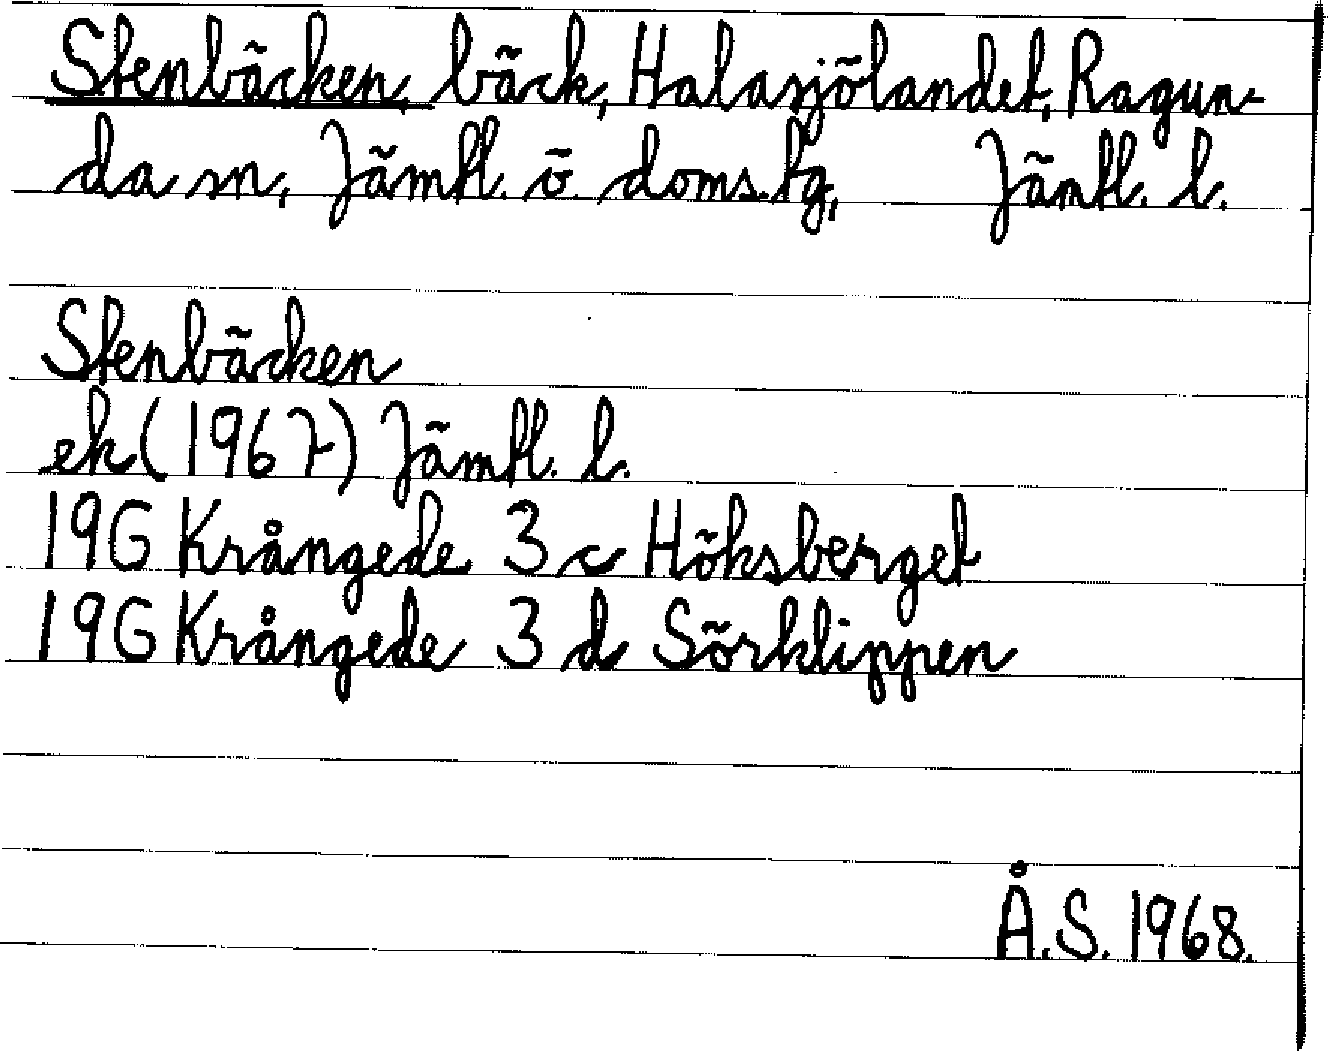 Stenbäcken, bäck, Halasjölandet, Ragun-
da sn, Jämtl. ö. doms. tg, Jämtl. l.
Stenbäcken
ek (1967) Jämtl. l.
19G Krångede 3 c Höksberget
19G Krångede 3 d Sörklippen
Å.S. 1968.